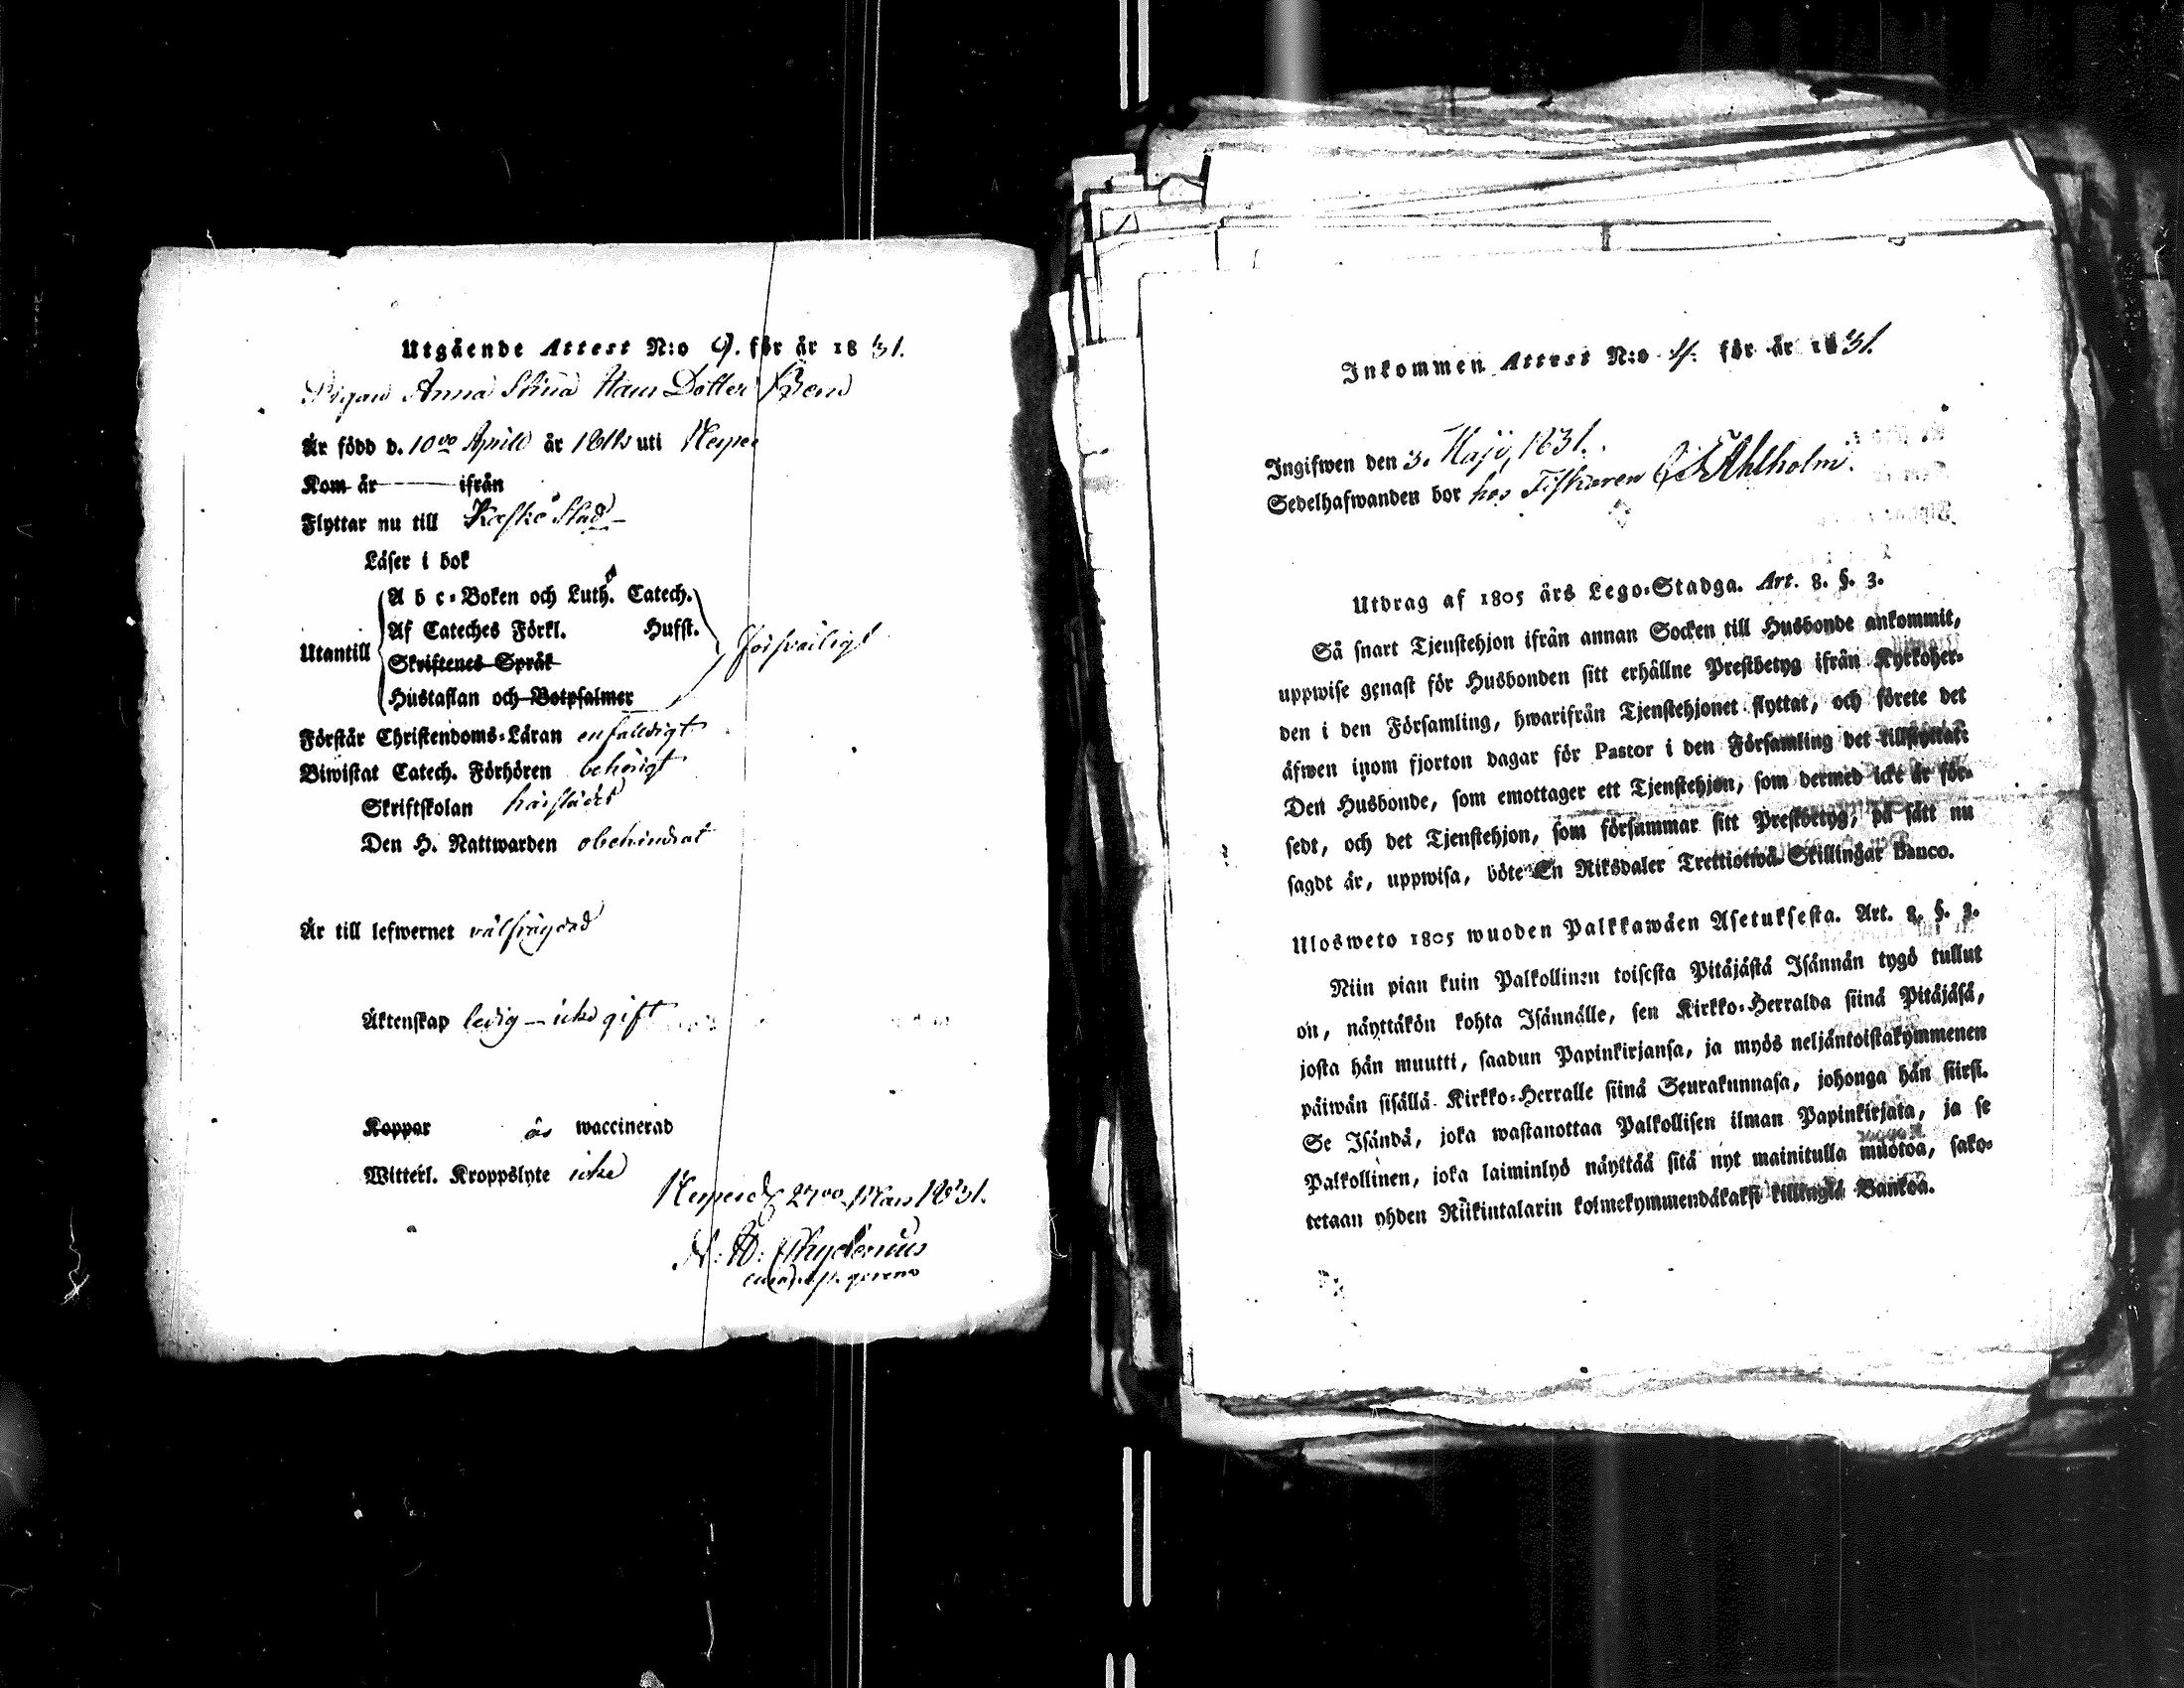 Utgående Attest N:o 9. för år 1831.
Pigan Anna Stina Hans Dotter
Är född d. 10de April år uti Nerpes
Kom år ifrån
Flyttar nu till Kaskö Stad
Läser i bok
A b c-Boken och Luth. Catech.
Af Cateches Förkl. Husft.
Utantill försvarligt
Skriftenes Språk
Hustaflan och Botpsalmer
Förstår Christendoms-Läran enfaldigt
Biwistat Catech. Förhören behörigt
Skriftskolan härstädes
Den H. Nattwarden obehindrat
Är till lefwernet välfrägdad
Äktenskap ledig — icke gift
Koppor är waccinerad
Witterl. Kroppslyte icke
Nerpes d. 27de Mars 1831.
Chydenius
Inkommen Attest N:o 4. för år 1831.
Ingifwen den 3. Maji 1831.
Sedelhafwanden bor hos Fiskaren Ahlholm.
Utdrag af 1805 års Lego-Stadga. Art. 8. §. 3.
Så snart Tjenstehjon ifrån annan Socken till Husbonde ankommit,
uppwise genast för Husbonden sitt erhållne Prestbetyg ifrån Kyrkoher-
den i den Församling, hwarifrån Tjenstehjonet flyttat, och förete det
äfwen inom fjorton dagar för Pastor i den Församling det tillflyttat:
Den Husbonde, som emottager ett Tjenstehjon, som dermed icke är för-
sedt, och det Tjenstehjon, som försummar sitt Prestbetyg, på sätt nu
sagdt är, uppwisa, böte En Riksdaler Trettiotwå Skillingar Banco.
Ulosweto 1805 wuoden Palkkawäen Asetuksesta. Art. 8. §. 3.
Niin pian kuin Palkollinen toisesta Pitäjästä Isännän tygö tullut
on, näyttäkön kohta Isännälle, sen Kirkko-Herralda siinä Pitäjäsä,
josta hän muutti, saadun Papinkirjansa, ja myös neljäntoistakymmenen
päiwän sisällä Kirkko-Herralle siinä Seurakunnasa, johonga hän siirsi.
Se Isändä, joka wastanottaa Palkollisen ilman Papinkirjata, ja se
Palkollinen, joka laiminlyö näyttää sitä nyt mainitulla muotoa, sako-
tetaan yhden Riikintalarin kolmekymmendäkaksi killingiä Bankoa.